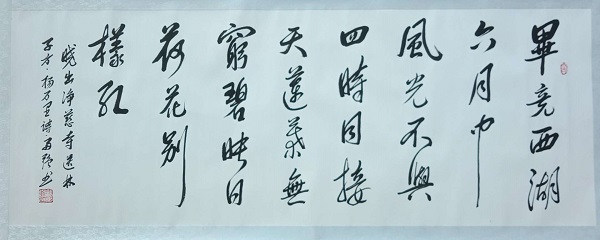 畢竟西湖
六月中
風光不與
四時同接
天蓮葉無
窮碧映日
荷花別
樣紅
晓出淨慈寺送林
子方 杨万里诗 书